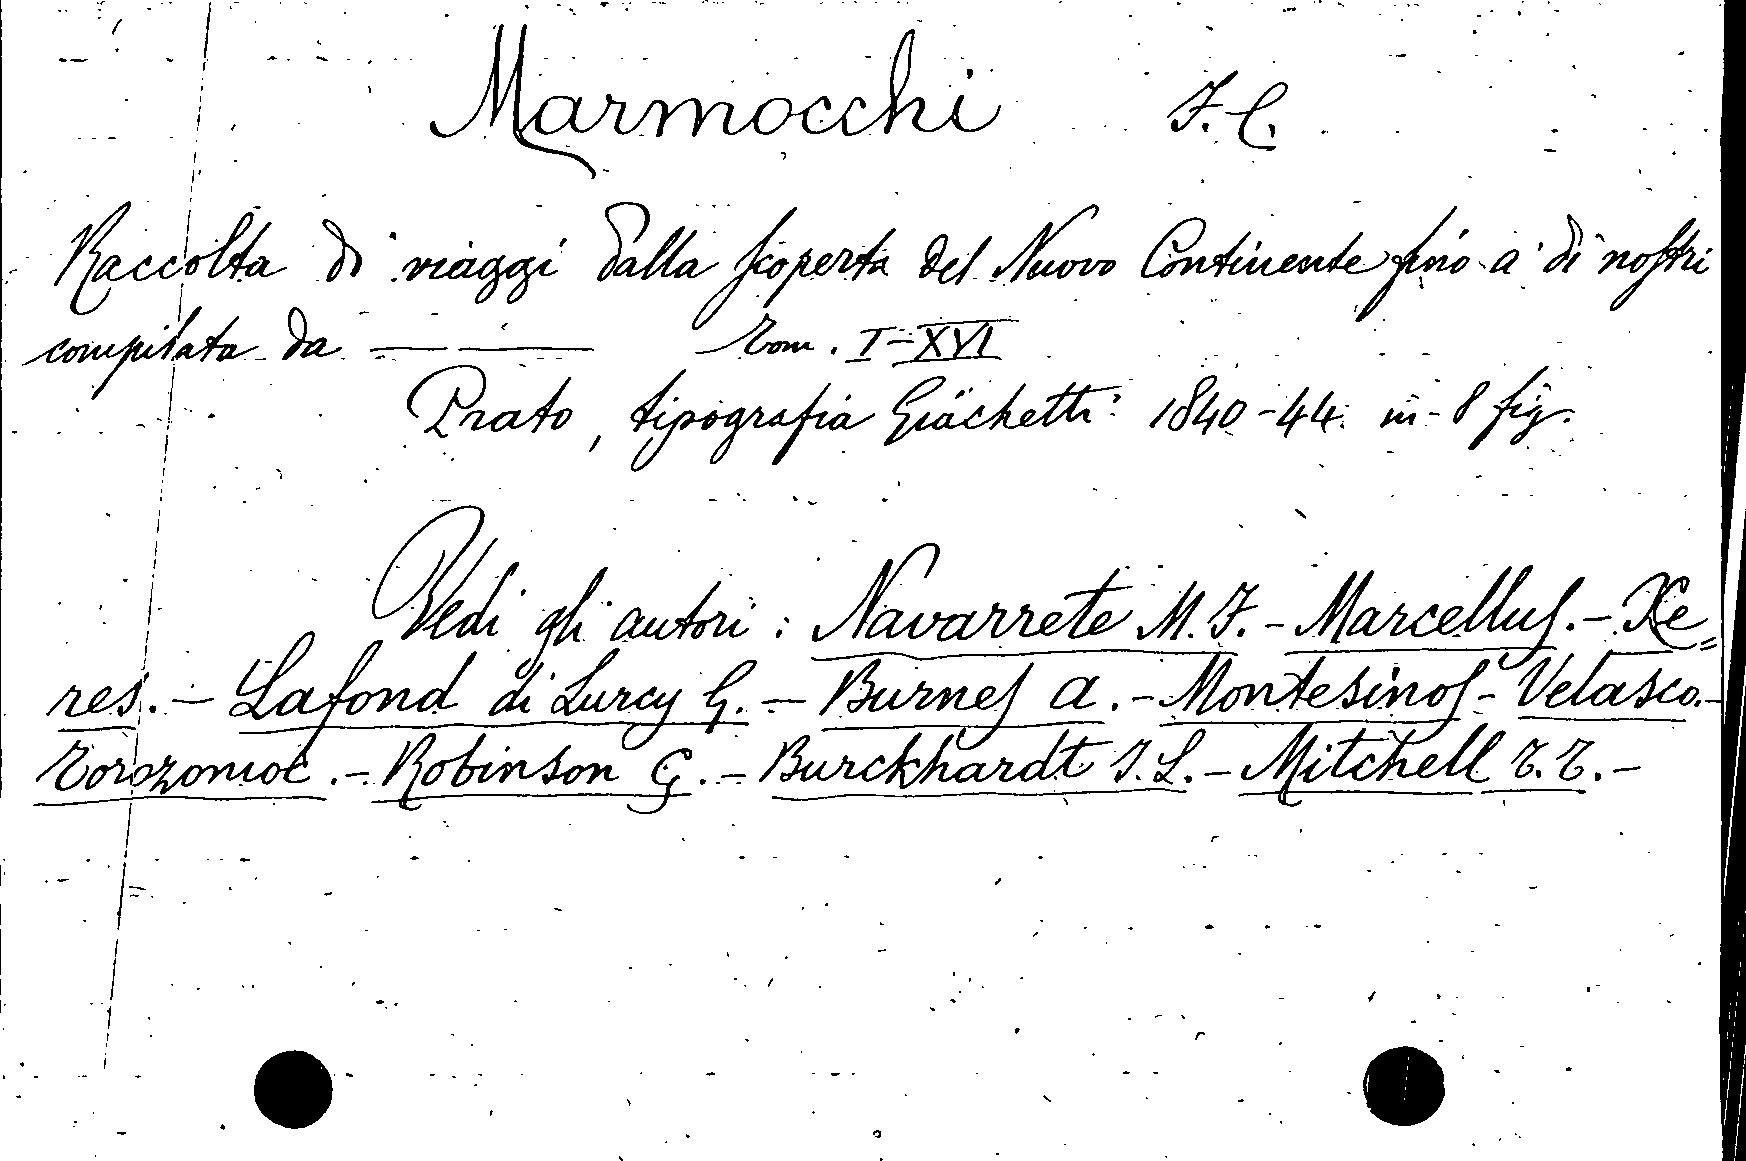 Marmocchi F. C.
Raccolta di viaggi dalla scoperta del Nuovo Continente fino a' dì nostri
compilata da — — Tom. I-XVI
Prato, tipografia Giachetti 1840-44. in-8 fig.
Vedi gli autori: Navarrete M. F. - Marcellus. - Xe=
res. - Lafond di Lurcy G. - Burnes A. - Montesinos - Velasco. -
Tozozomoc. - Robinson G. - Burckhardt I. L. - Mitchell T. T. -